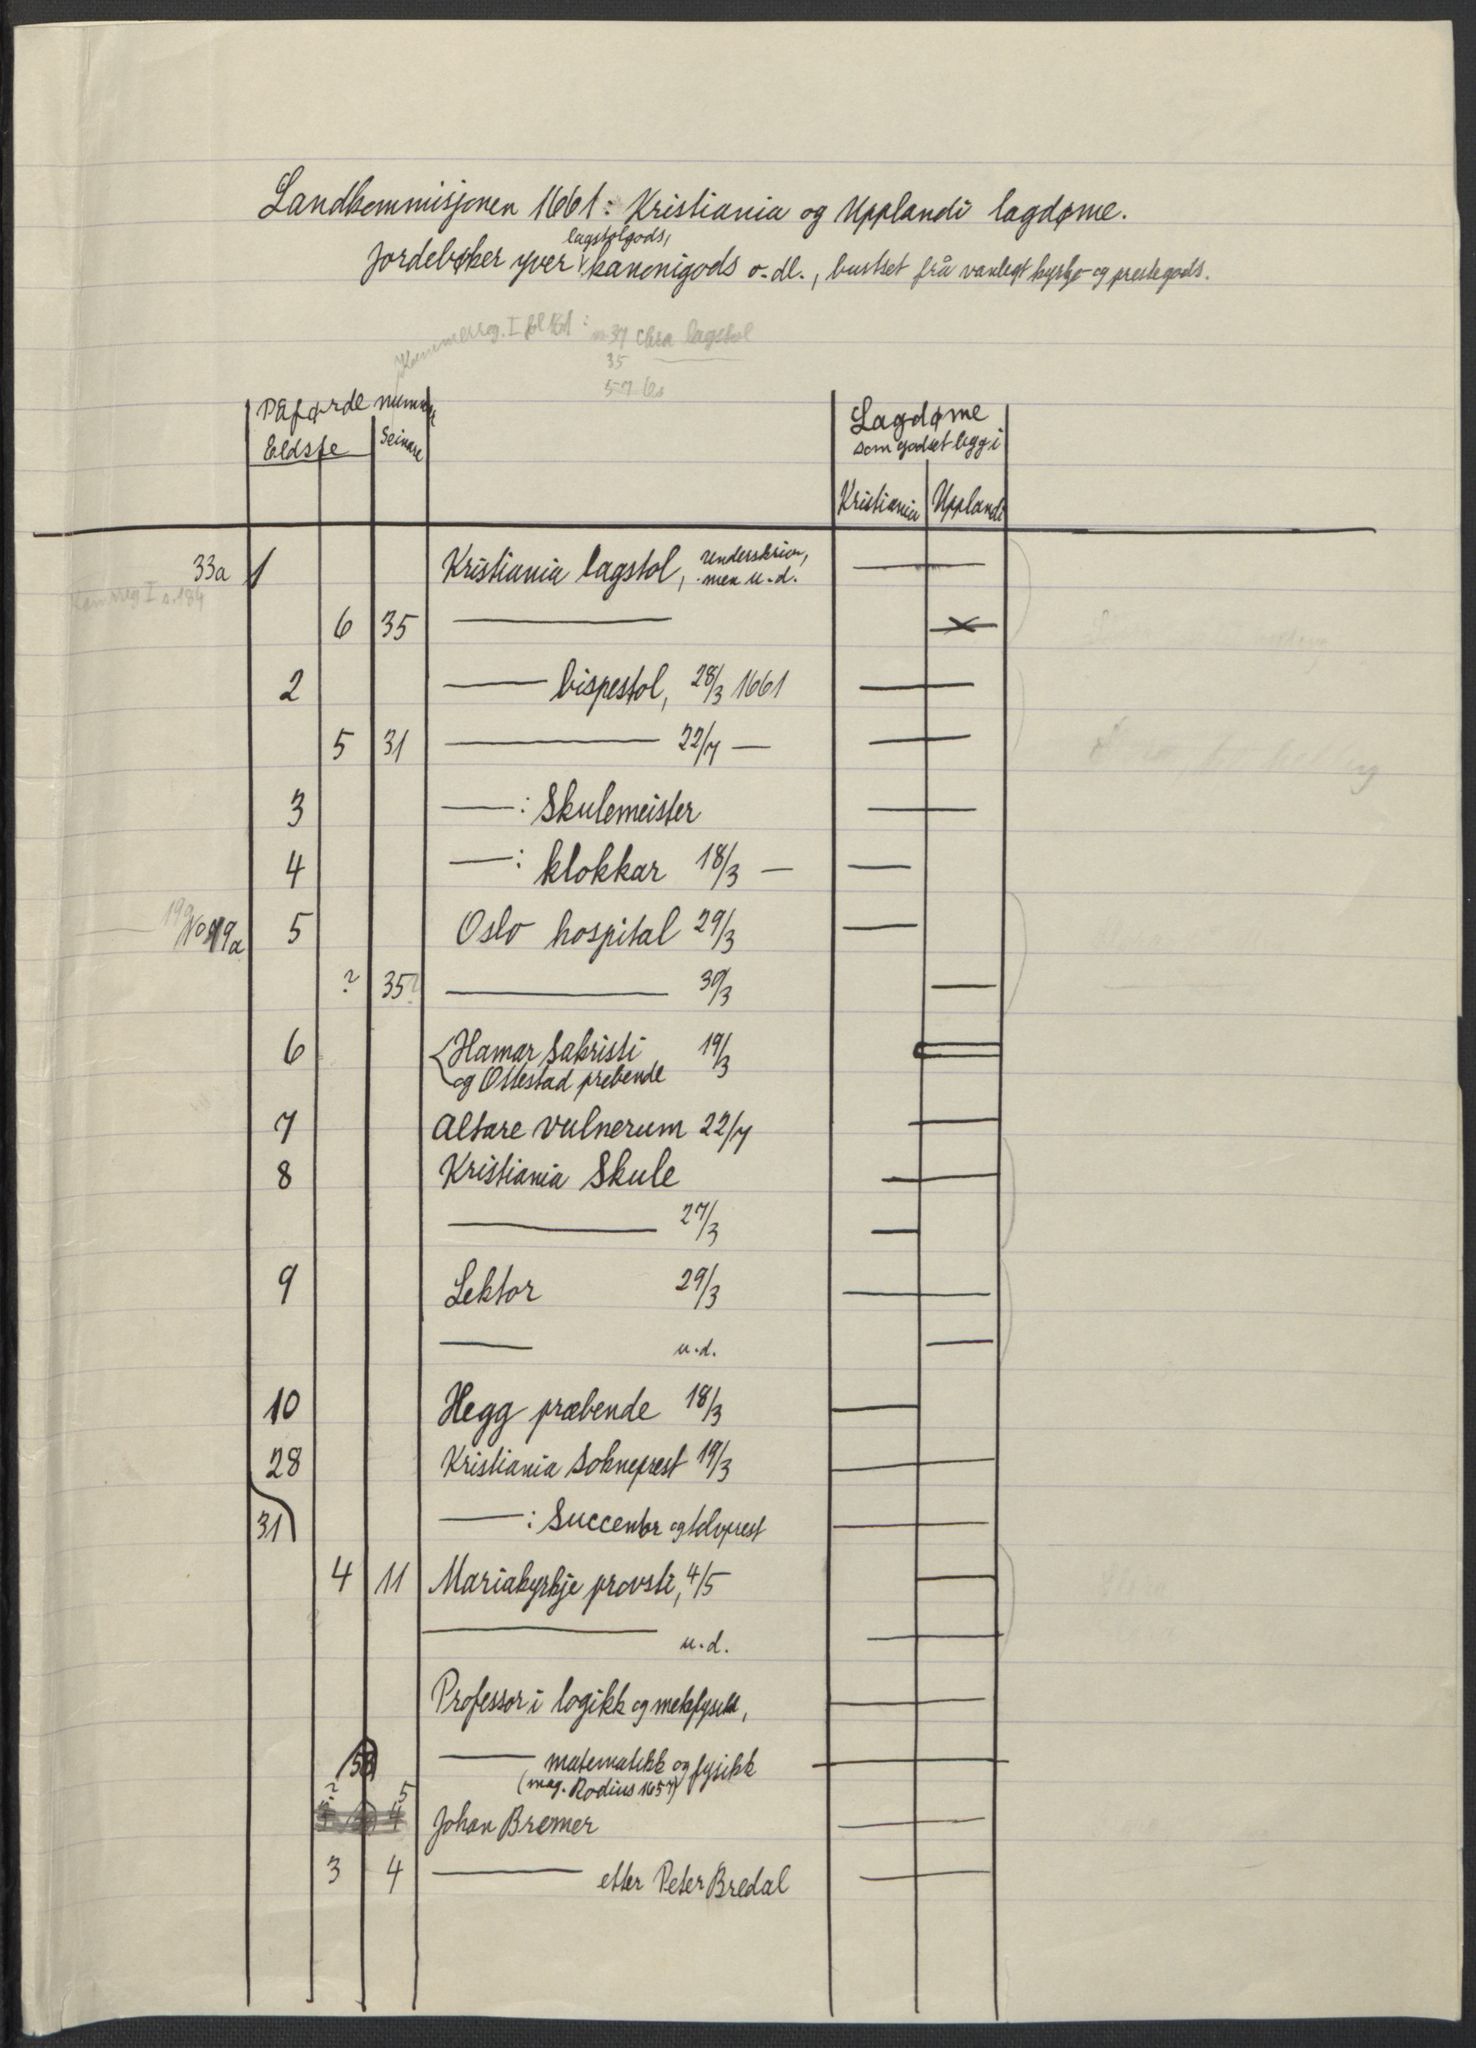 Landkommisjonen 1661: Kristiania og Upplandi lagdøme.
lagstolgods,
Jordebøker yver kanonigods o.dl., buttset frå vanlegt kyrkje- og prestegods.
Kammerreg. I fol 161: 37 Chra lagstol
35
57 6s
Påførde nummer
Eldste Seinare
Lagdøme
som godset ligg i
Kristiania Upplandi
33a 1 Kristiania lagstol, underskriven,
men u.d.
Kamreg I s. 184
6 35 ——— x
2 —— bispestol, 28/3 1661
5 31 ——— 22/7 —
3 ——: Skulemeister
4 ——: klokkar 18/3 —
No 19a 5 Oslo hospital 29/3
? 35? ——— 30/3
6 Hamar Sakristi 19/3
og Ottestad prebende
7 Altare vulnerum 22/7
8 Kristiania Skule
——— 27/3
9 Lektor 29/3
—— u.d.
10 Hegg præbende 18/3
28 Kristiania Sokneprest 19/3
31 ——: Succentor og tolvprest
4 11 Mariakyrkje provsti, 4/5
——— u.d.
Professor i logikk og metafysikk,
58 —— matematikk og fysikk
(mag. Rodius 1657)
? 5 Johan Bremer
3 4 ——— etter Peter Bredal